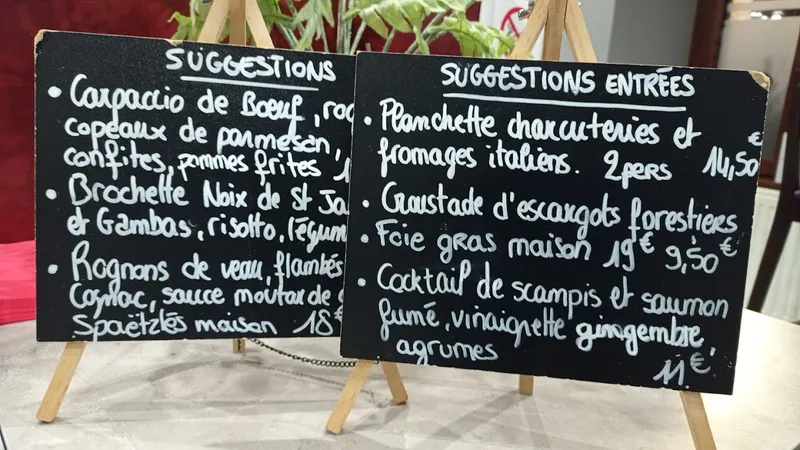 SUGGESTIONS
• Carpaccio de Bœuf, roq
copeaux de parmesan,
confites, pommes frites,
• Brochette Noix de St Ja
et Gambas, risotto, légum
• Rognons de veau, flambés
Cognac, sauce moutarde
Spaëtzlés maison 18€
SUGGESTIONS ENTRÉES
• Planchette charcuteries et
fromages italiens. 2pers 14,50€
• Croustade d'escargots forestiers
9,50€
• Foie gras maison 19€
• Cocktail de scampis et saumon
fumé, vinaigrette gingembre,
agrumes
11€